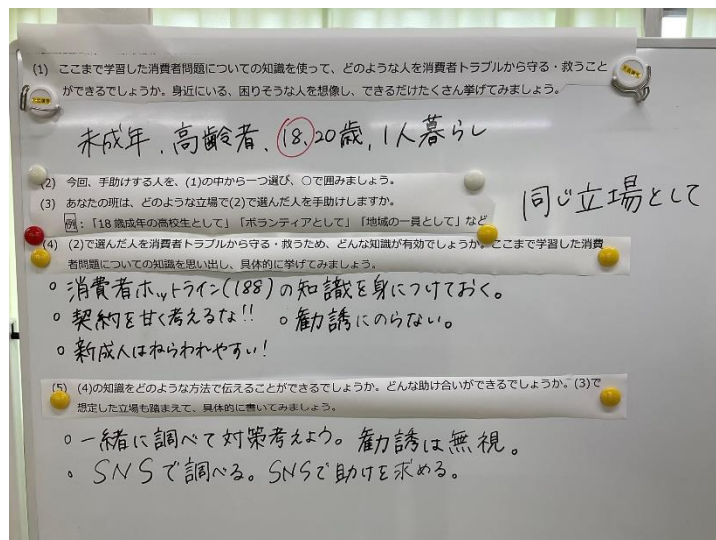 (1) ここまで学習した消費者問題についての知識を使って、どのような人を消費者トラブルから守る・救うこと
ができるでしょうか。身近にいる、困りそうな人を想像し、できるだけたくさん挙げてみましょう。
未成年、高齢者、18、20歳、1人暮らし
(2) 今回、手助けする人を、(1)の中から一つ選び、○で囲みましょう。
(3) あなたの班は、どのような立場で(2)で選んだ人を手助けしますか。
例:「18歳成年の高校生として」「ボランティアとして」「地域の一員として」など
同じ立場として
(4) (2)で選んだ人を消費者トラブルから守る・救うため、どんな知識が有効でしょうか。ここまで学習した消費
者問題についての知識を思い出し、具体的に挙げてみましょう。
○ 消費者ホットライン(188)の知識を身につけておく。
○ 契約を甘く考えるな!! ○ 勧誘にのらない。
○ 新成人はねらわれやすい!
(5) (4)の知識をどのような方法で伝えることができるでしょうか。どんな助け合いができるでしょうか。(3)で
想定した立場も踏まえて、具体的に書いてみましょう。
○ 一緒に調べて対策考えよう。勧誘は無視。
○ SNSで調べる。SNSで助けを求める。